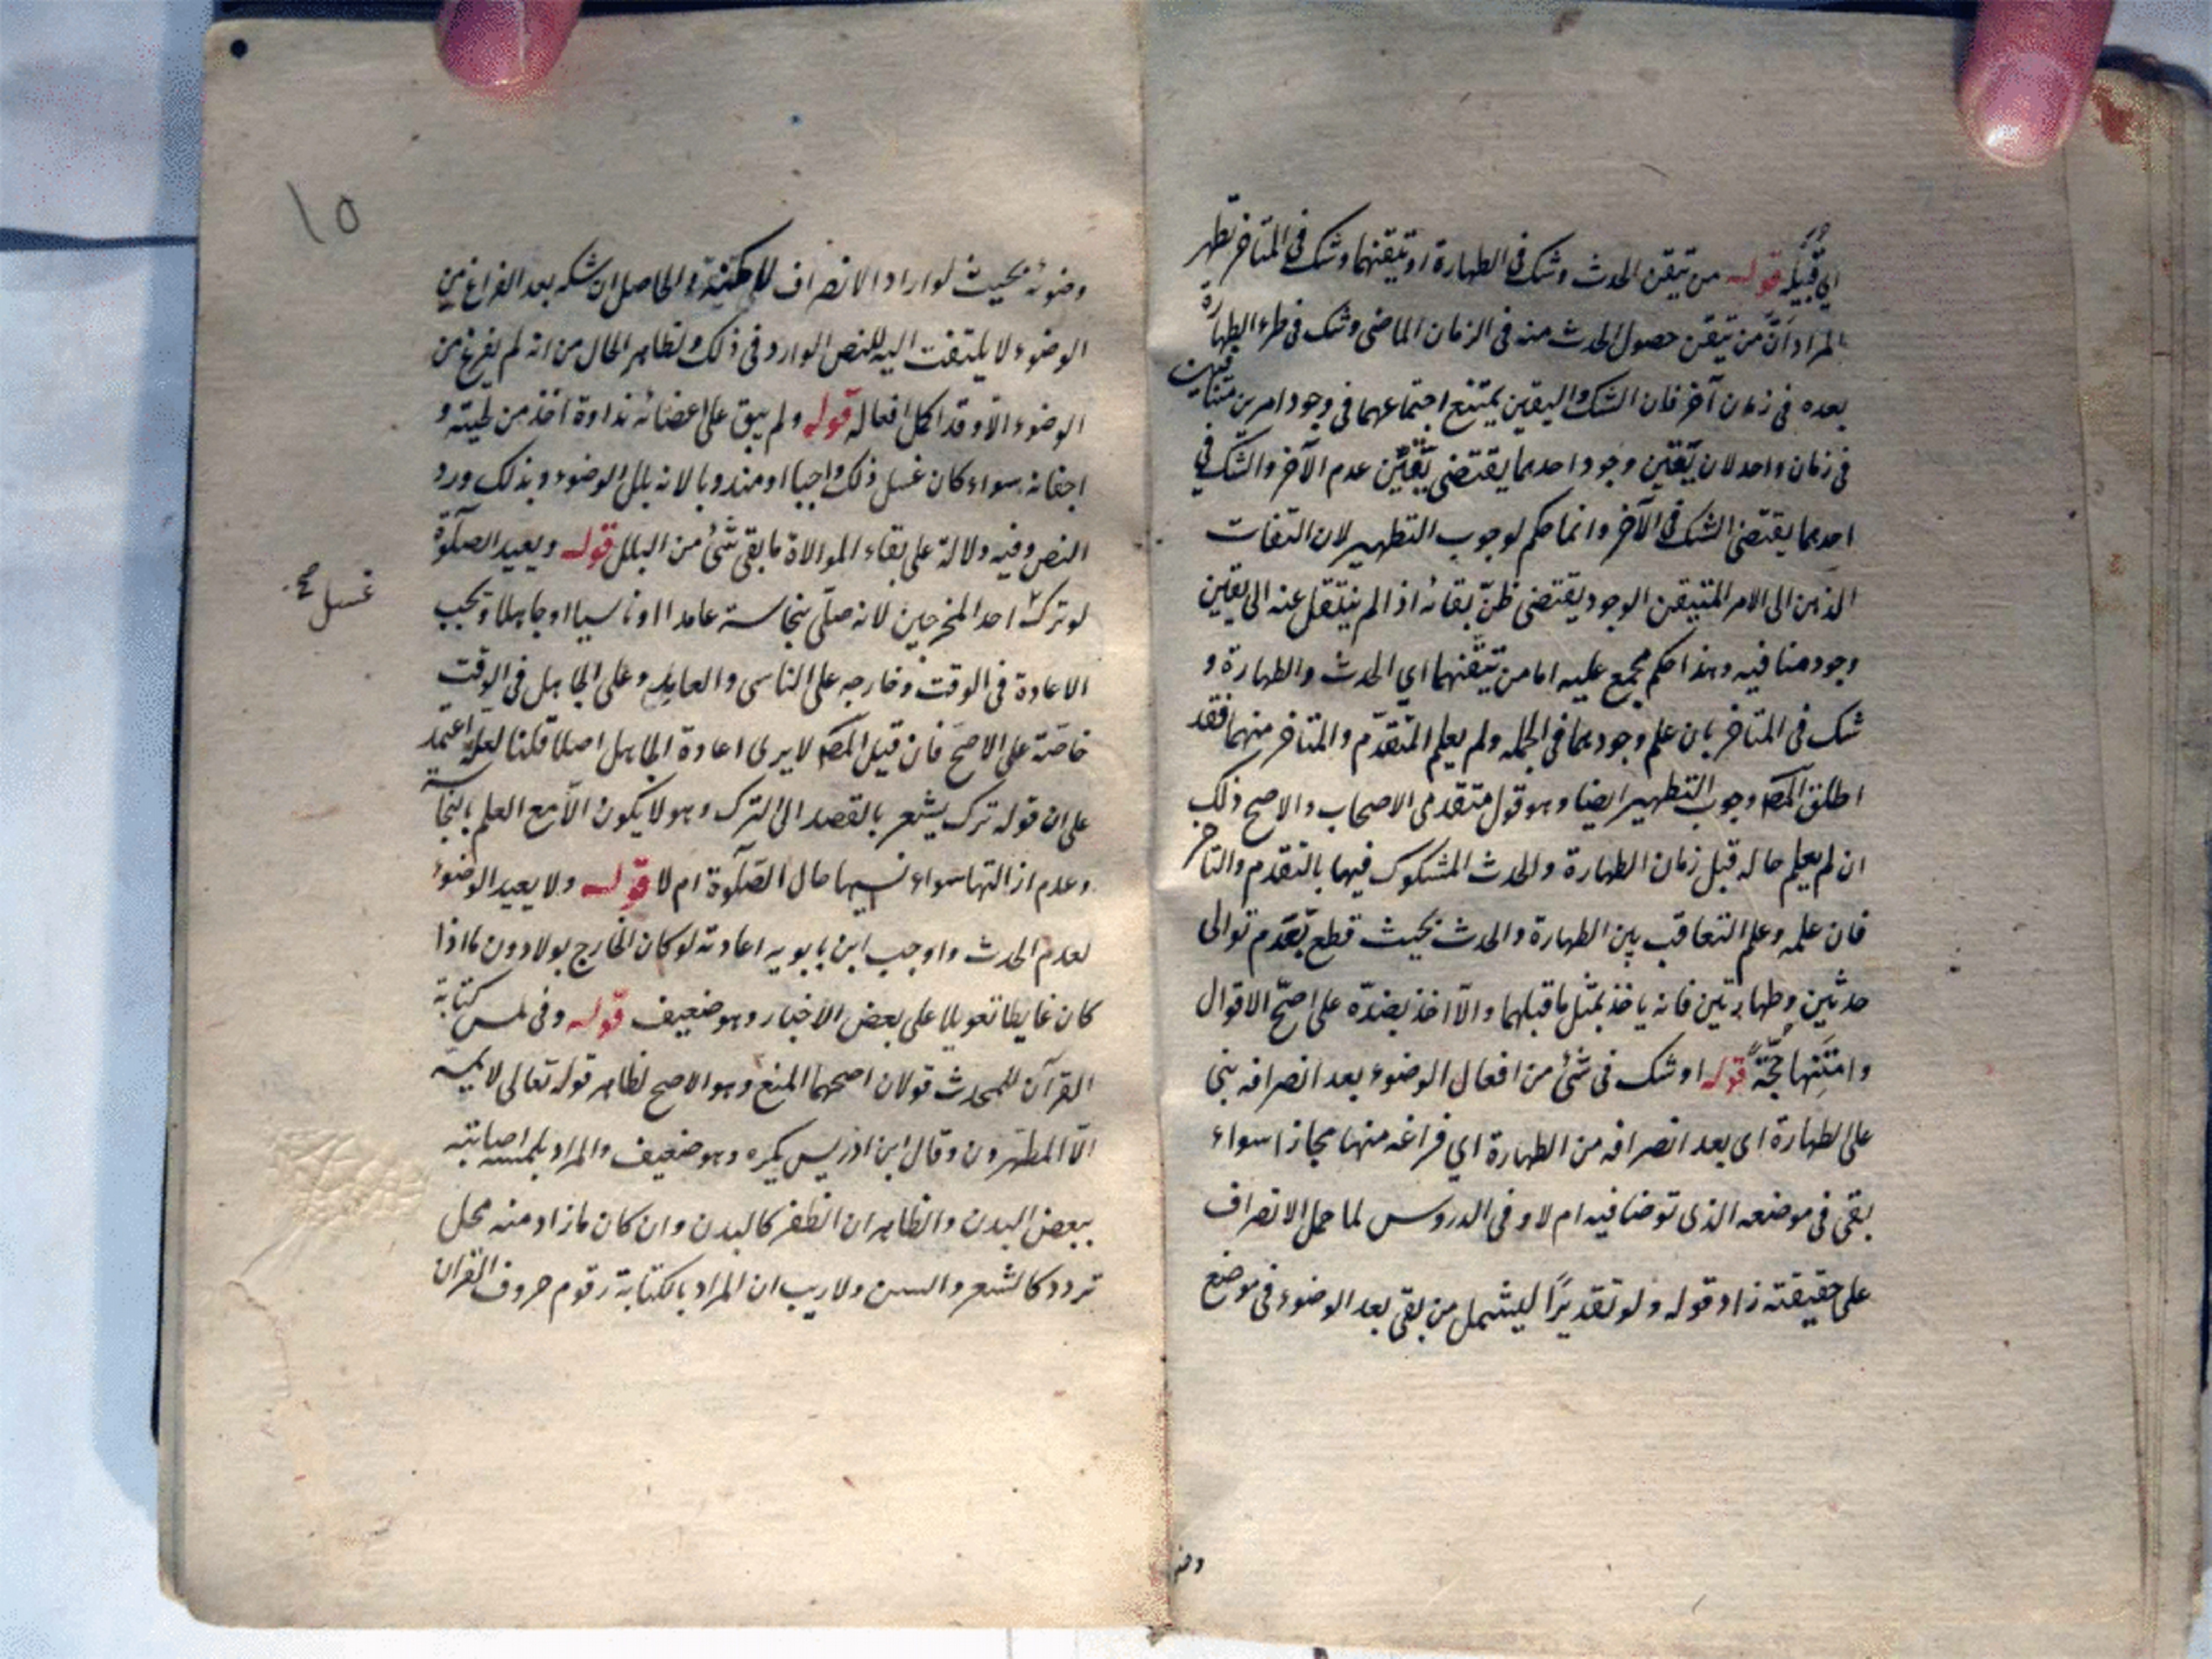 اي قبيله قوله من تيقن الحدث وشك في الطهارة او تيقنهما وشك في المتاخر تطهر
المراد انّ من تيقن حصول الحدث منه في الزمان الماضي وشك في طرء الطهارة
بعده في زمان آخر فان الشك واليقين يمتنع اجتماعهما في وجود امرين متنافيين
في زمان واحد لان يقين وجود احدهما يقتضي يقين عدم الآخر والشك في
احدهما يقتضي الشك في الآخر وانما حكم لوجوب التطهير لان التفات
الذهن الى الامر المتيقن الوجود يقتضي ظنّ بقائه اذا لم ينتقل عنه الى يقين
وجود منافيه وهذا حكم مجمع عليه اما من تيقنهما اي الحدث والطهارة و
شك في المتاخر بان علم وجودهما في الجمله ولم يعلم المتقدّم والمتاخر منهما فقد
اطلق المصه وجوب التطهير ايضا وهو قول متقدمي الاصحاب والاصح ذلك
ان لم يعلم حاله قبل زمان الطهارة والحدث المشكوك فيها بالتقدم والتاخر
فان علمه وعلم التعاقب بين الطهارة والحدث بحيث قطع بعدم توالى
حدثين وطهارتين فانه ياخذ بمثل ما قبلهما والّا اخذ بضدّه على اصحّ الاقوال
وامتنها حجّة قوله او شك في شئ من افعال الوضوء بعد انصرافه بنى
على الطهارة اى بعد انصرافه من الطهارة اي فراغه منها مجازا سواء
بقى في موضعه الذى توضا فيه ام لا وفى الدروس لما حمل الانصراف
على حقيقته زاد قوله ولو تقديرًا ليشمل من بقى بعد الوضوء في موضع
وضو
١٥
وضوئه بحيث لو اراد الانصراف لامكنه والحاصل ان شكه بعد الفراغ من
الوضوء لا يلتفت اليه للنص الوارد في ذلك ولظاهر الحال من انه لم يفرغ من
الوضوء الّا وقد اكمل افعاله قوله ولم يبق على اعضائه نداوة اخذ من لحيته و
اجفانه سواء كان غسل ذلك واجبا او مندوبا لانه بلل الوضوء وبذلك ورد
النص وفيه دلالة على بقاء الموالاة ما بقى شئ من البلل قوله ويعيد الصلوة
لو ترك احد المخرجين لانه صلّى بنجاسة عامدا او ناسيا او جاهلا وتجب
غسل صح
الاعادة في الوقت وخارجه على الناسى والعامد وعلى الجاهل في الوقت
خاصّة على الاصحّ فان قيل المصه لا يرى اعادة الجاهل اصلا قلنا لعله اعتمد
على ان قوله ترك يشعر بالقصد الى الترك وهو لا يكون الّا مع العلم بالنجاسة
وعدم ازالتها سواء نسيها حال الصّلوة ام لا قوله ولا يعيد الوضوء
لعدم الحدث واوجب ابن بابويه اعادته لو كان الخارج بولا دون ما اذا
كان غايطا تعويلا على بعض الاخبار وهو ضعيف قوله وفى لمس كتابة
القرآن للمحدث قولان اصحهما المنع وهو الاصح لظاهر قوله تعالى لا يمسه
الّا المطهّرون وقال ابن ادريس يكره وهو ضعيف والمراد بلمسه اصابته
ببعض البدن والظاهر ان الظفر كالبدن وان كان ما زاد منه محل
تردد كالشعر والسن ولا ريب ان المراد بالكتابة رقوم حروف القران